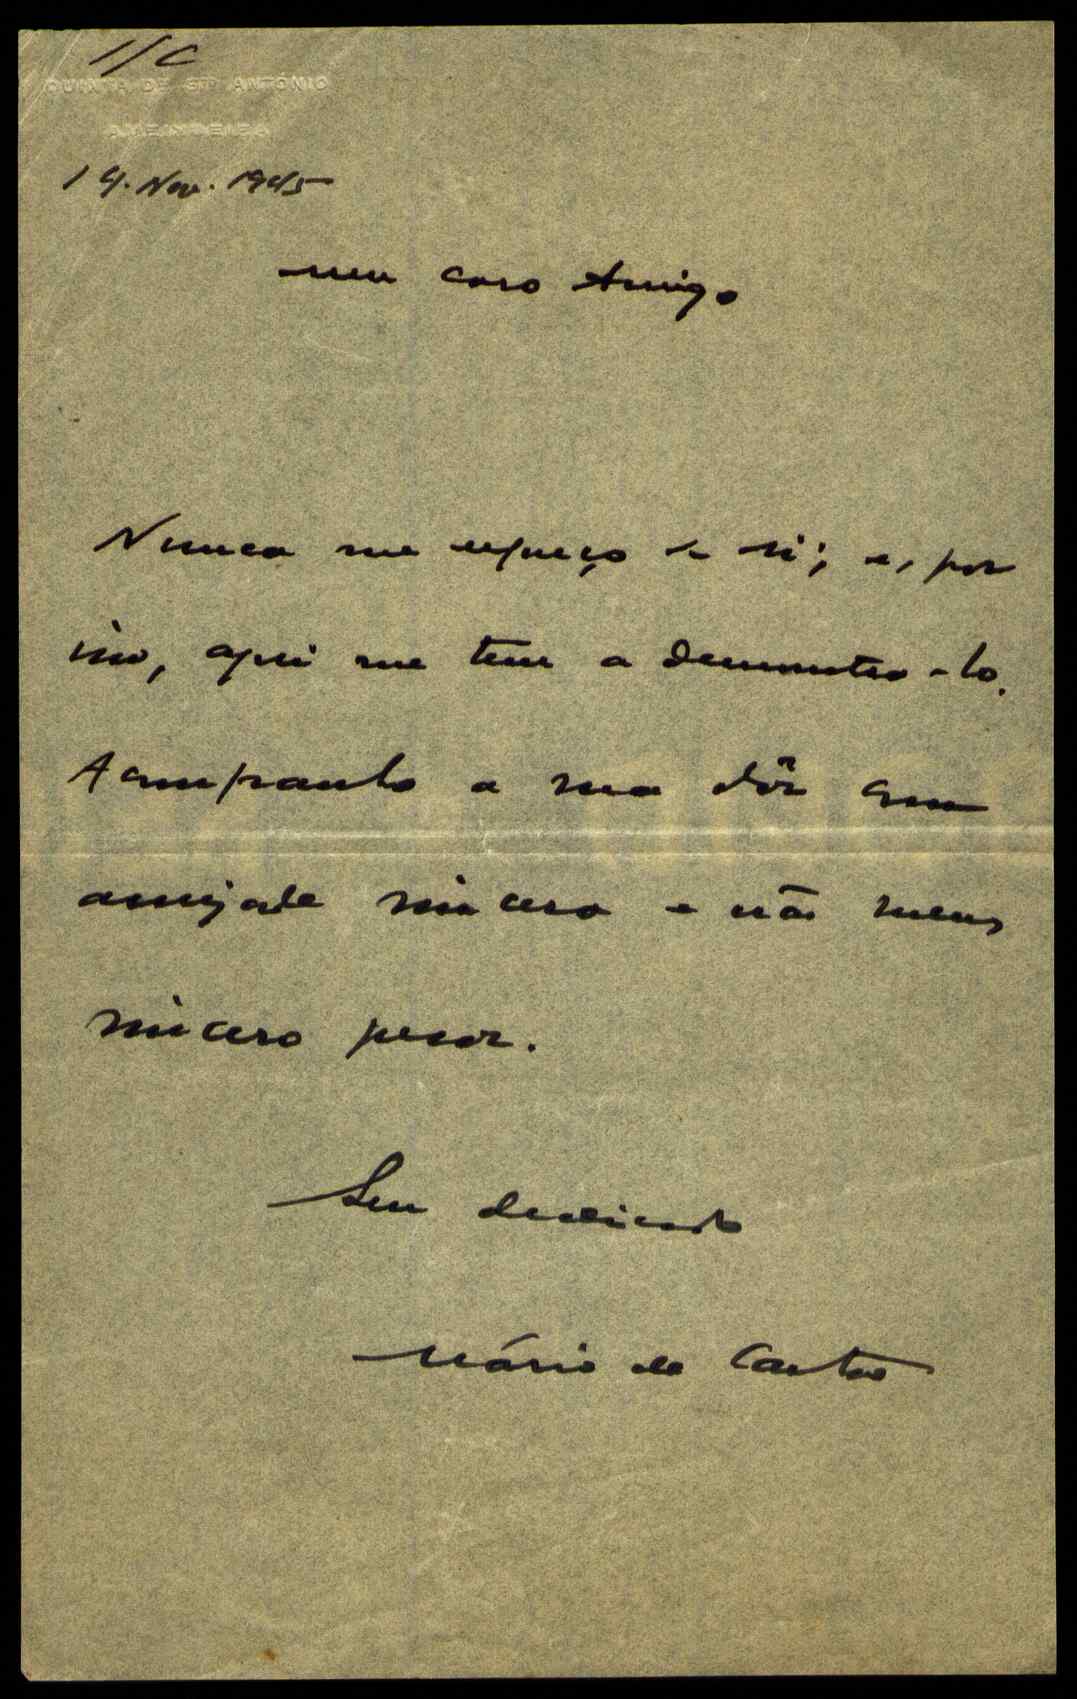 1/C
QUINTA DE STO ANTÓNIO
AMEIXOEIRA
14. Nov. 1945
Meu caro Amigo
Nunca me esqueço de si; e, por
isso, aqui me tem a demonstra-lo.
Acompanho a sua dôr com
amizade sincera e não menos
sincero pesar.
Seu dedicado
Mário de Castro